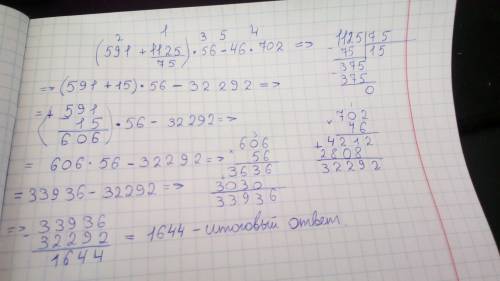 2 1 3 5 4
(591 + 1125/75) · 56 - 46 · 702 =>
1125 | 75
- 75 | 15
375
- 375
0
=> (591 + 15) · 56 - 32292 =>
= ( + 591
15
606 ) · 56 - 32292 =>
× 702
46
+ 4212
2808
32292
= 606 · 56 - 32292 =>
3
× 606
56
+ 3636
3030
33936
= 33936 - 32292 =>
=> - 33936
32292
1644 = 1644 - итоговый ответ